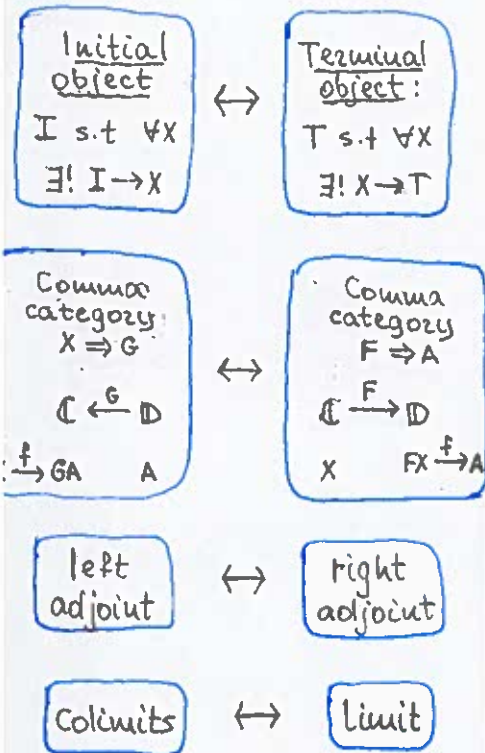 Initial
object
I s.t ∀X
∃! I→X
↔
Terminal
object:
T s.t ∀X
∃! X→T
Comma
category
X ⇒ G
ℂ ←G 𝔻
f→ GA A
↔
Comma
category
F ⇒ A
ℂ F→ 𝔻
X FX f→ A
left
adjoint
↔
right
adjoint
Colimits
↔
Limit